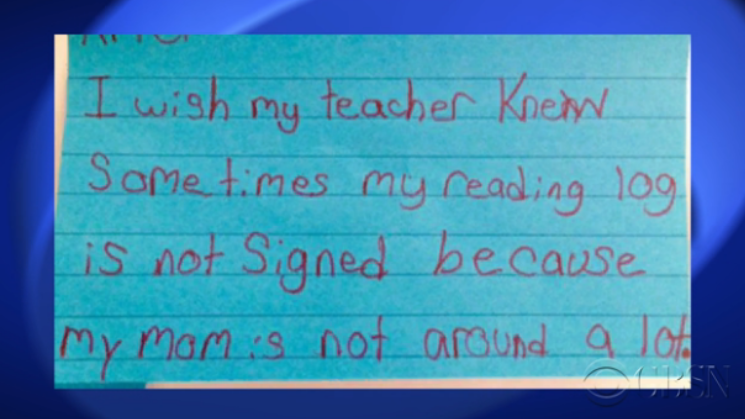 I wish my teacher Knew
Sometimes my reading log
is not Signed because
my mom is not around a lot.
CBSN